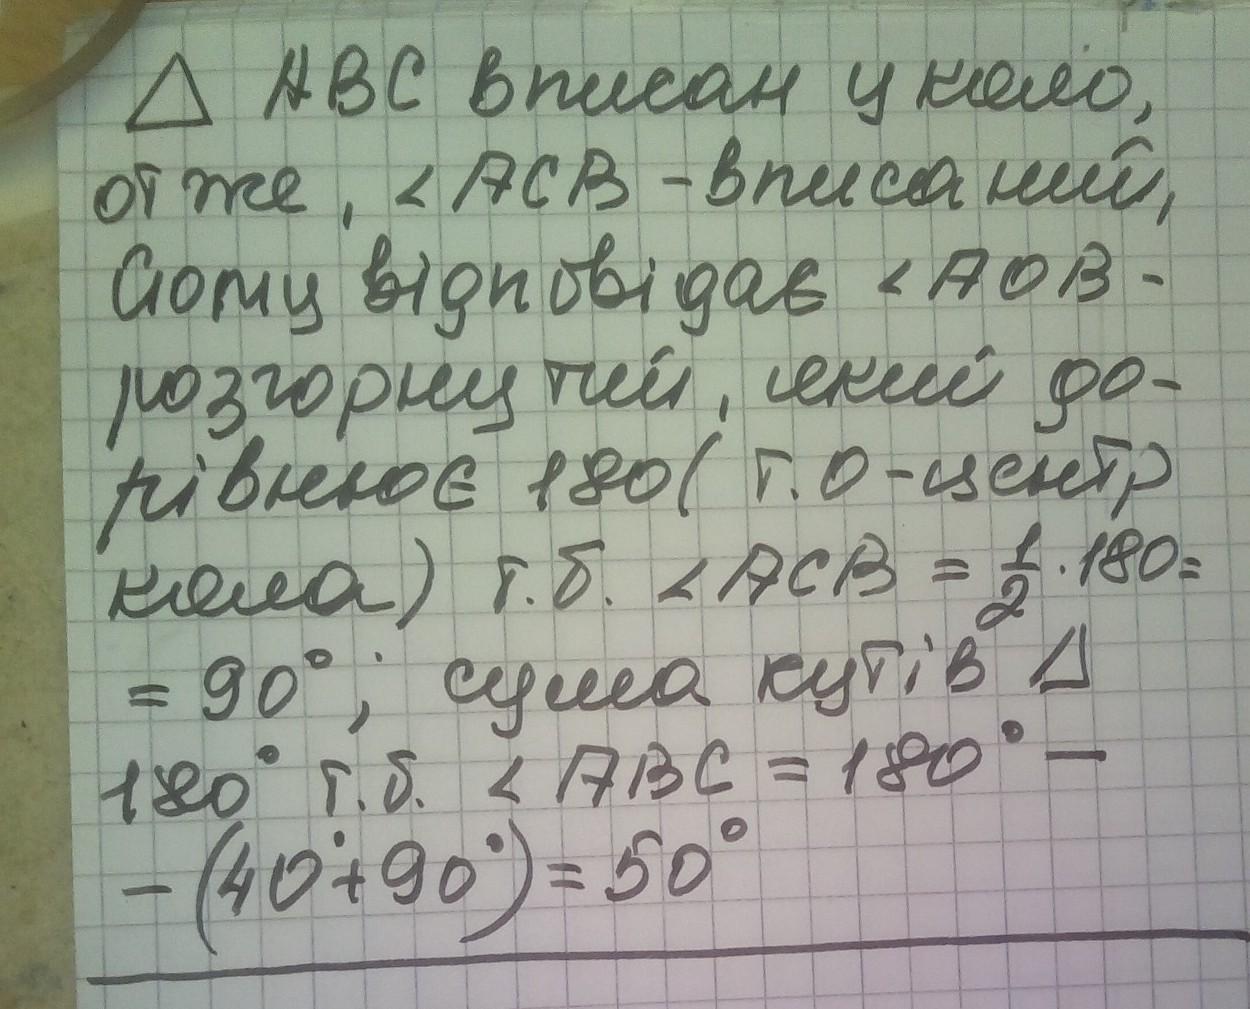 △ АВС вписан у коло,
отже, <АСВ - вписаний,
йому відповідає <АОВ -
розгорнутий, який до-
рівнює 180( т.О-центр
кола) т.б. <АСВ = 1/2 · 180=
= 90°; сума кутів △
180° т.б. <АВС = 180° -
- (40°+90°) = 50°